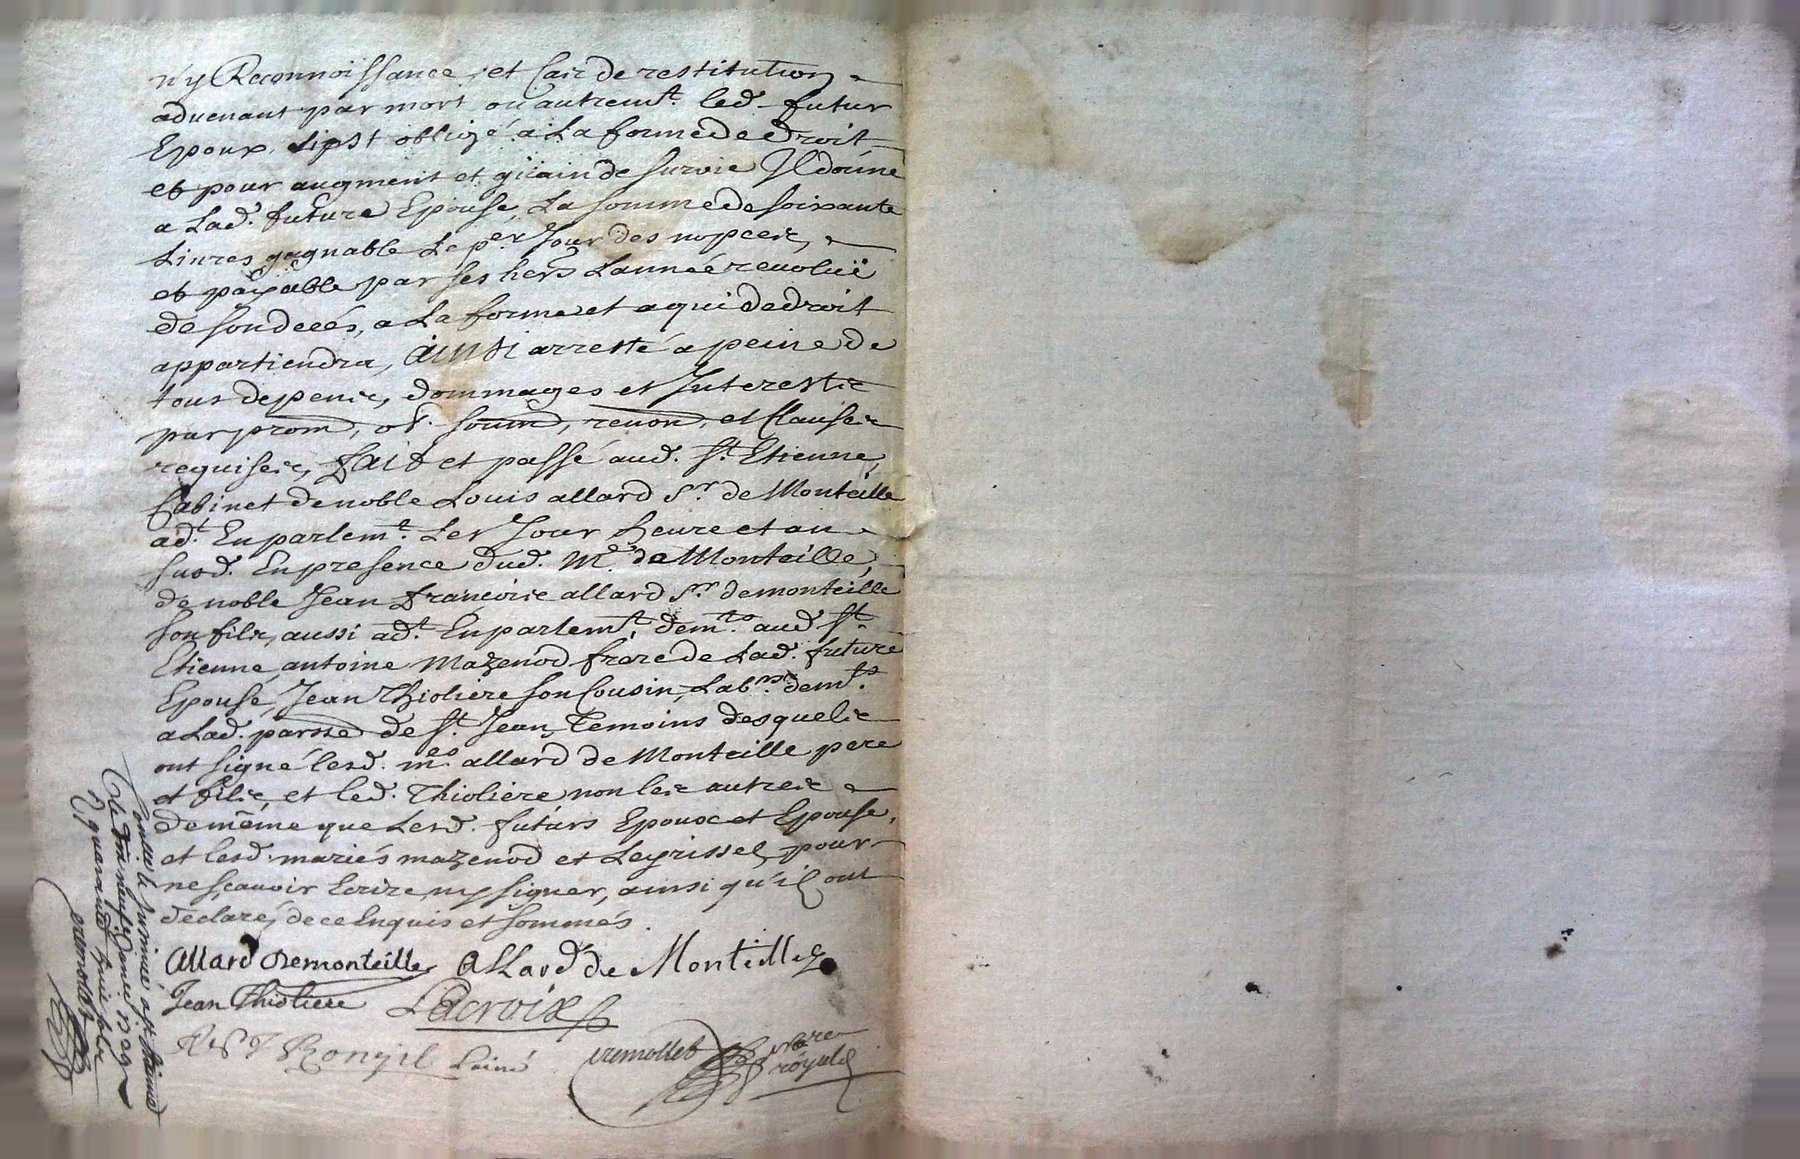 n'y Reconnoissance, et Cas de restitution
advenant par mort ou autrem.t led. futur
Epoux s'ipst obligé a La forme de droit
et pour augment et güain de survie Il doñne
a Lad. future Epouse, La somme de soixante
Livres gagnable Le p.er Jour des nopces,
et païable par ses hers Lannéé revolüe
de son decés, a La forme et a qui de droit
appartiendra, Ainsi arresté a peine de
tous depens, dommages et Interests
par prom, ob. soum, renon, et Clauses
requises, fait et passé aud. St Etienne,
Cabinet de noble Louis allard S.r de Monteille
ad.t En parlem.t Les Jour heure et an
susd. En presence dud. M.e de Monteille,
de noble Jean françois allard S.r demonteille
son fils, aussi ad.t En parlem.t, dem.ts aud. St
Etienne, antoine Mazenod frere de Lad. future
Epouse, Jean Thioliere son Cousin, Lab.rs dem.ts
a Lad. parsse de St Jean, Temoins desquels
ont signé lesd. m.es allard de Monteille pere
et fils, et led. Thioliere non les autres
de même que Lesd. futurs Epoux et Epouse,
et lesd. mariés mazenod et Leyrissel, pour
ne sçavoir Ecrire, ny signer, ainsi qu'ils ont
declaré, de ce Enquis et sommés.
Allard Demonteille Allard de Monteille
Jean Thioliere Lacroix
Ronzil Lainé cremollet nore
royal
Controllé Insinué, a St Etienne
quarante huit sols
cremollet